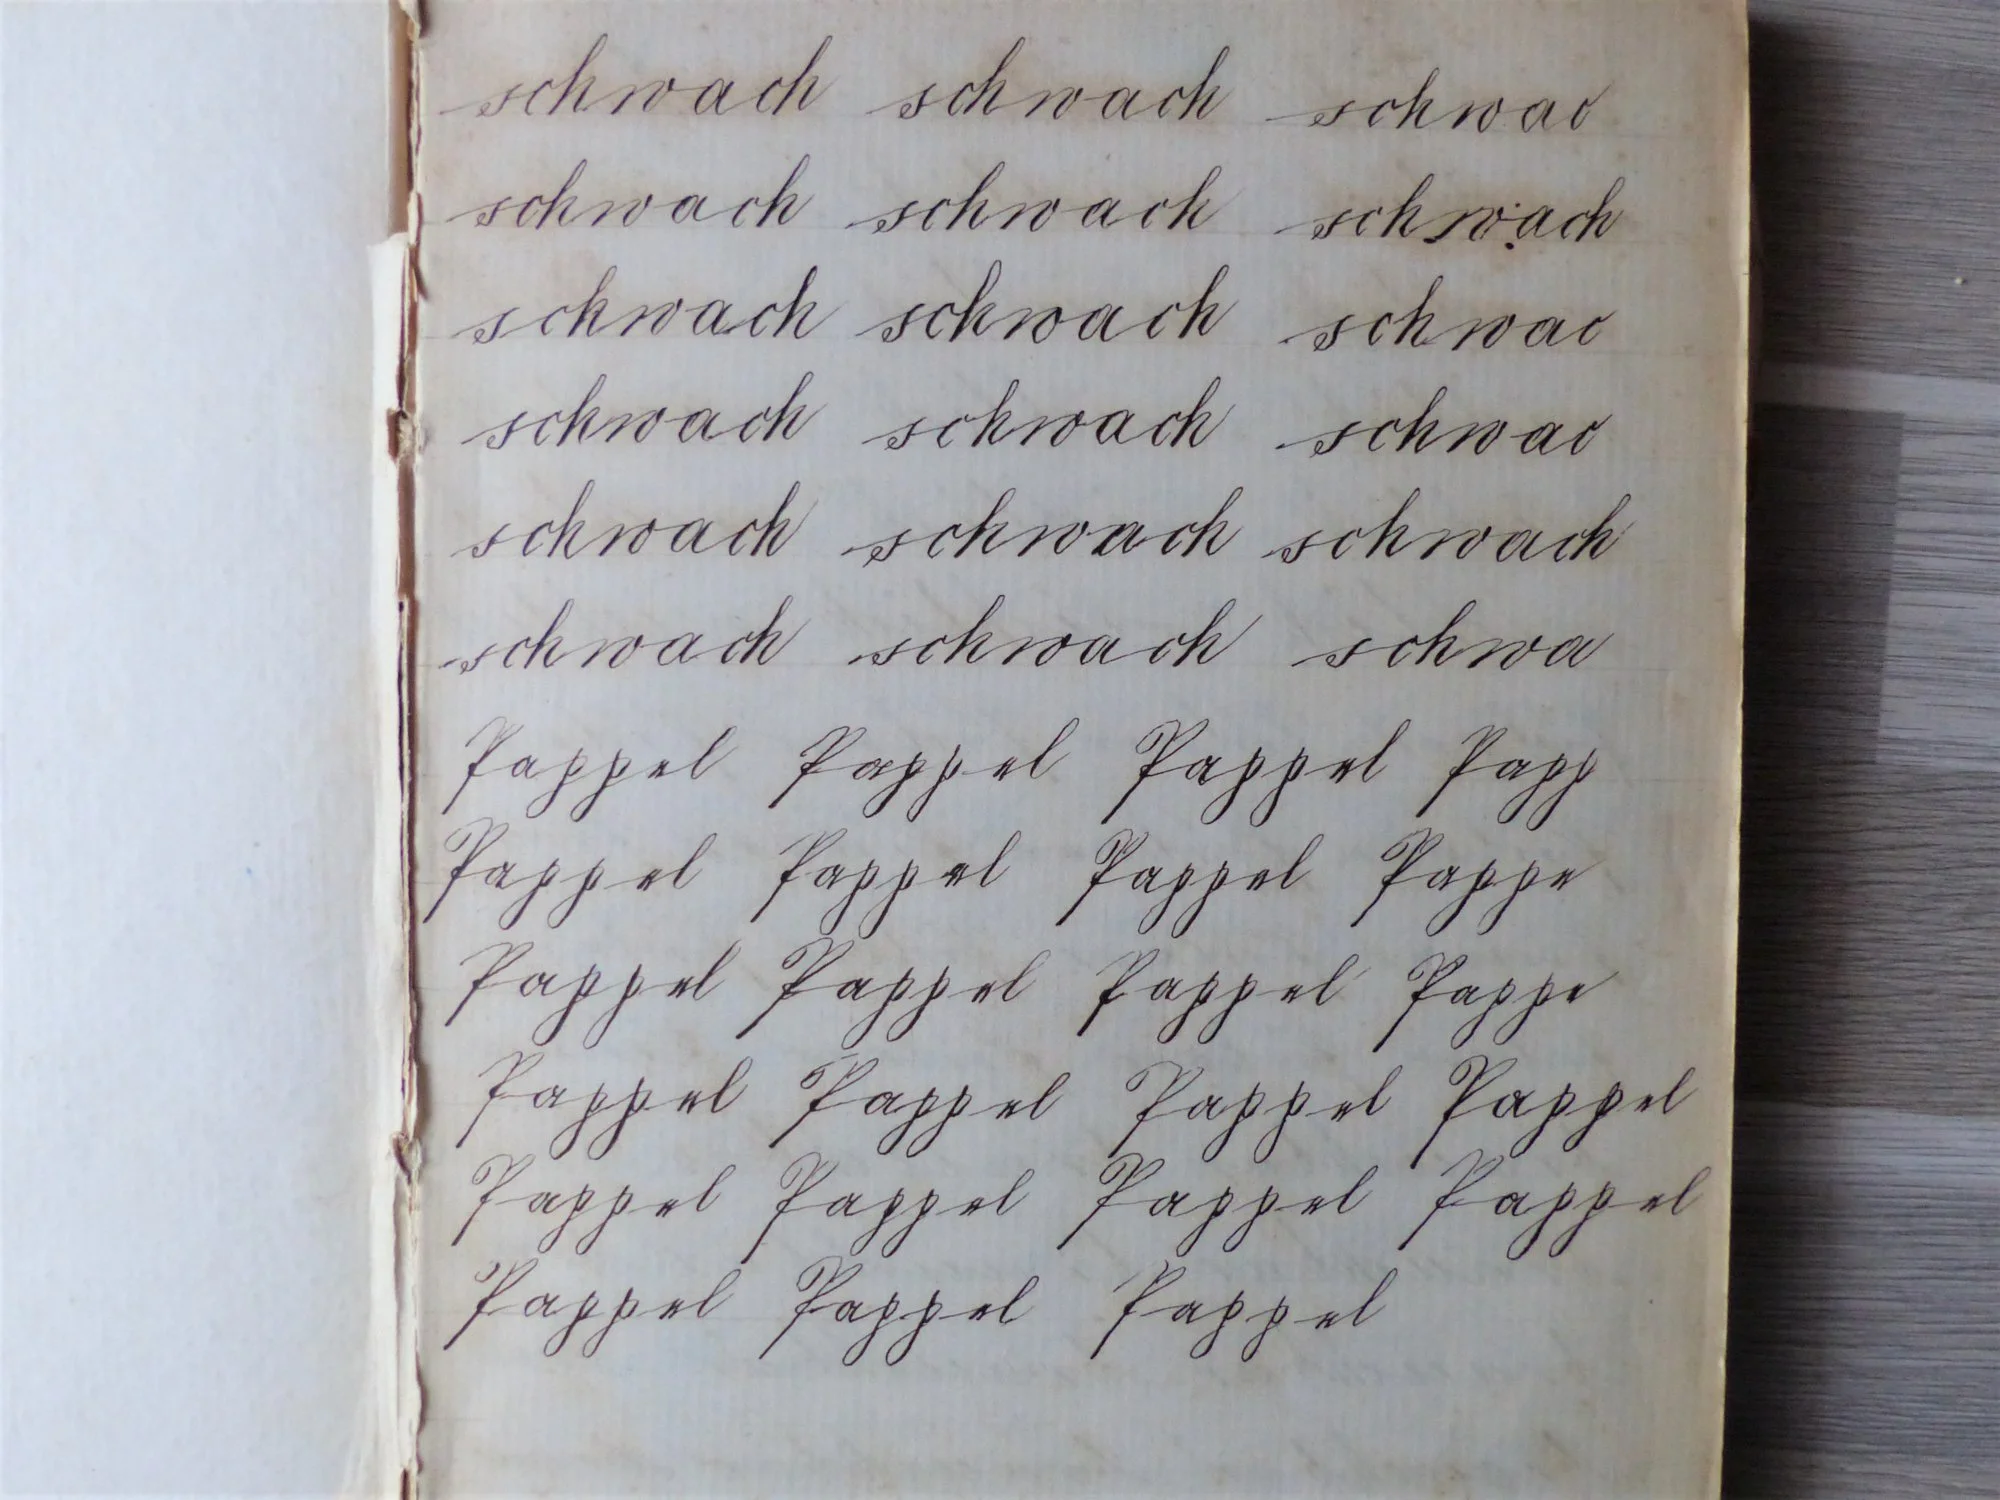 schwach schwach schwac
schwach schwach schwach
schwach schwach schwac
schwach schwach schwac
schwach schwach schwach
schwach schwach schwa
Pappel Pappel Pappel Papp
Pappel Pappel Pappel Pappe
Pappel Pappel Pappel Pappe
Pappel Pappel Pappel Pappel
Pappel Pappel Pappel Pappel
Pappel Pappel Pappel